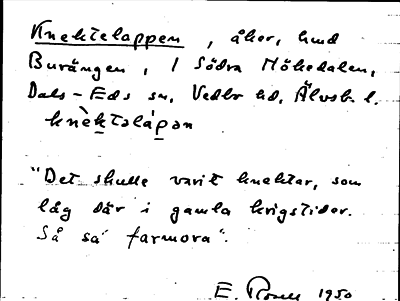 Knektelappen, åker, hmd
Burängen, 1 Södra Hökedalen,
Dals-Eds sn, Vedbo hd, Älvsb. l.
knèktəlápən
"Det skulle varit knektar, som
låg där i gamla krigstider.
Så sa farmora".
E. 1950